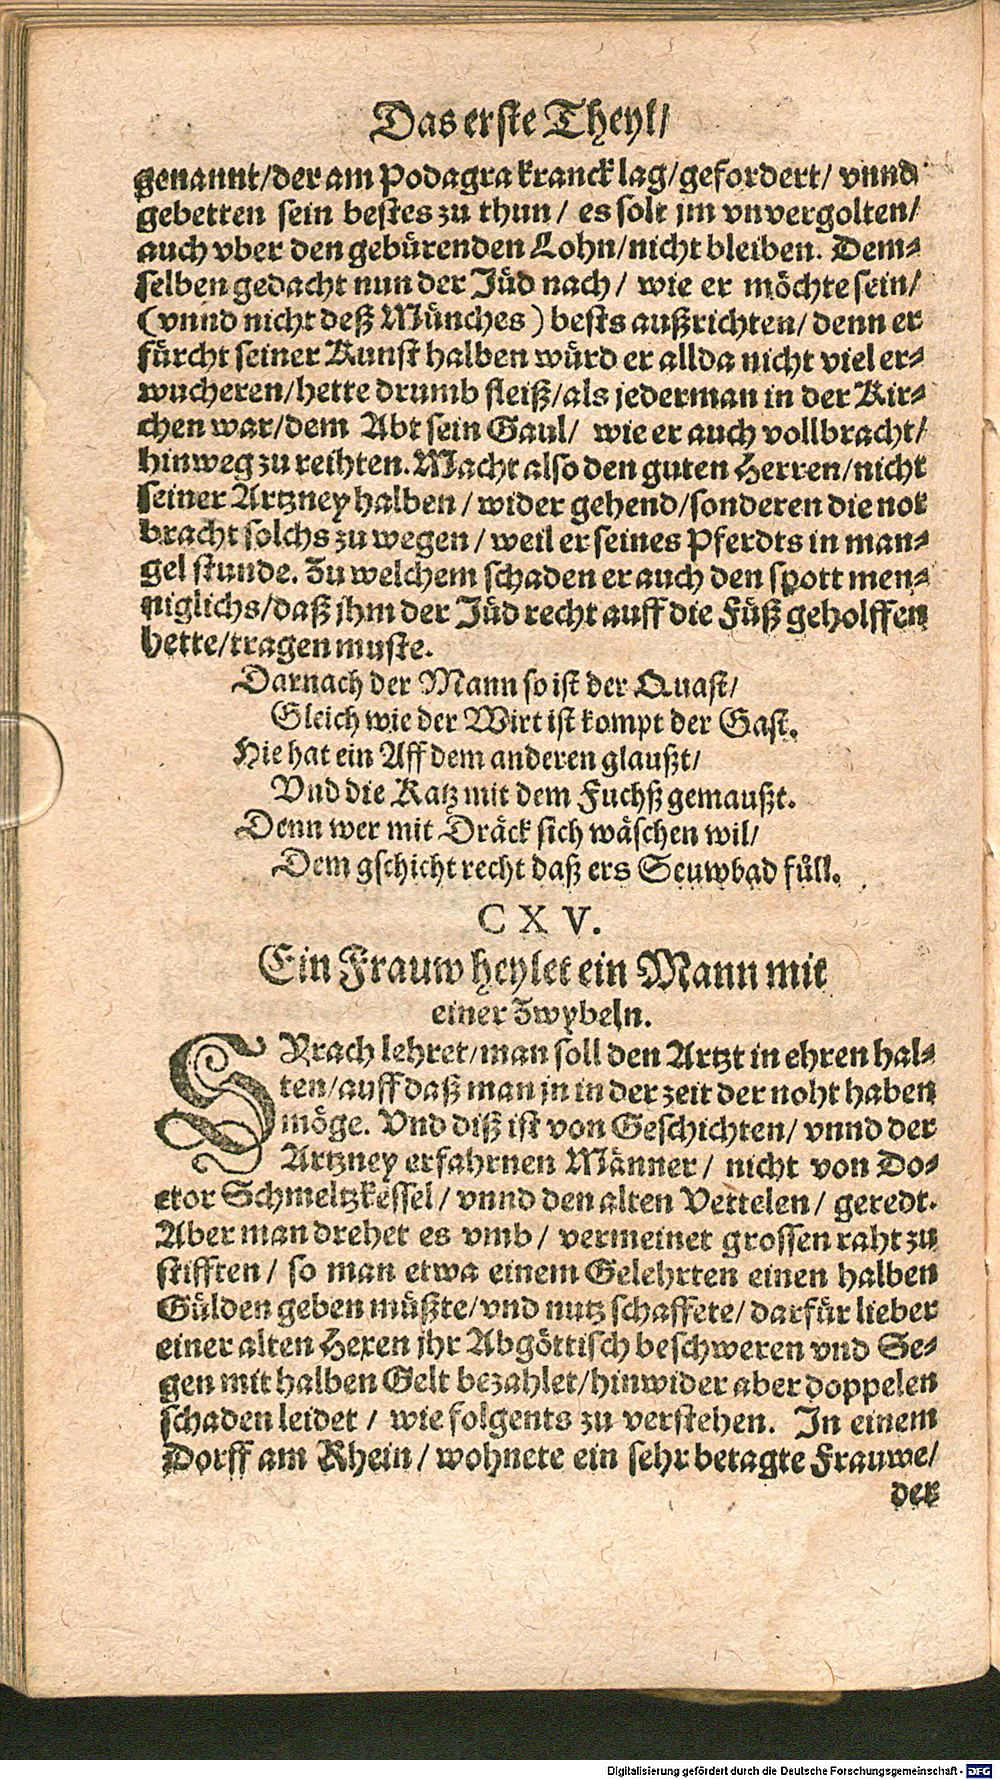 Das erste Theyl/
genannt/der am Podagra kranck lag/gefordert/ vnnd
gebetten sein bestes zu thun/ es solt jm vnvergolten/
auch vber den gebürenden Lohn/nicht bleiben. Dem-
selben gedacht nun der Jüd nach/ wie er möchte sein/
(vnnd nicht deß Münches) bests außrichten/ denn er
fürcht seiner Kunst halben würd er allda nicht viel er-
wucheren/hette drumb fleiß/als jederman in der Kir-
chen war/dem Abt sein Gaul/ wie er auch vollbracht/
hinweg zu reihten. Macht also den guten Herren/nicht
seiner Artzney halben/ wider gehend/sonderen die not
bracht solchs zu wegen/ weil er seines Pferdts in man-
gel stunde. Zu welchem schaden er auch den spott men-
niglichs/daß jhm der Jüd recht auff die Füß geholffen
hette/tragen muste.
Darnach der Mann so ist der Quast/
Gleich wie der Wirt ist kompt der Gast.
Hie hat ein Aff dem anderen glaußt/
Vnd die Katz mit dem Fuchß gemaußt.
Denn wer mit Dräck sich wäschen wil/
Dem gschicht recht daß ers Seuwbad füll.
CXV.
Ein Frauw heylet ein Mann mit
einer Zwybeln.
SYrach lehret/man soll den Artzt in ehren hal-
ten/auff daß man jn in der zeit der noht haben
möge. Vnd diß ist von Geschichten/ vnnd der
Artzney erfahrnen Männer/ nicht von Do-
ctor Schmeltzkessel/ vnnd den alten Vettelen/ geredt.
Aber man drehet es vmb/ vermeinet grossen raht zu
stifften/ so man etwa einem Gelehrten einen halben
Gülden geben müßte/vnd nutz schaffete/ darfür lieber
einer alten Hexen jhr Abgöttisch beschweren vnd Se-
gen mit halben Gelt bezahlet/hinwider aber doppelen
schaden leidet/ wie folgents zu verstehen. In einem
Dorff am Rhein/ wohnete ein sehr betagte Frauwe/
der
Digitalisierung gefördert durch die Deutsche Forschungsgemeinschaft - DFG